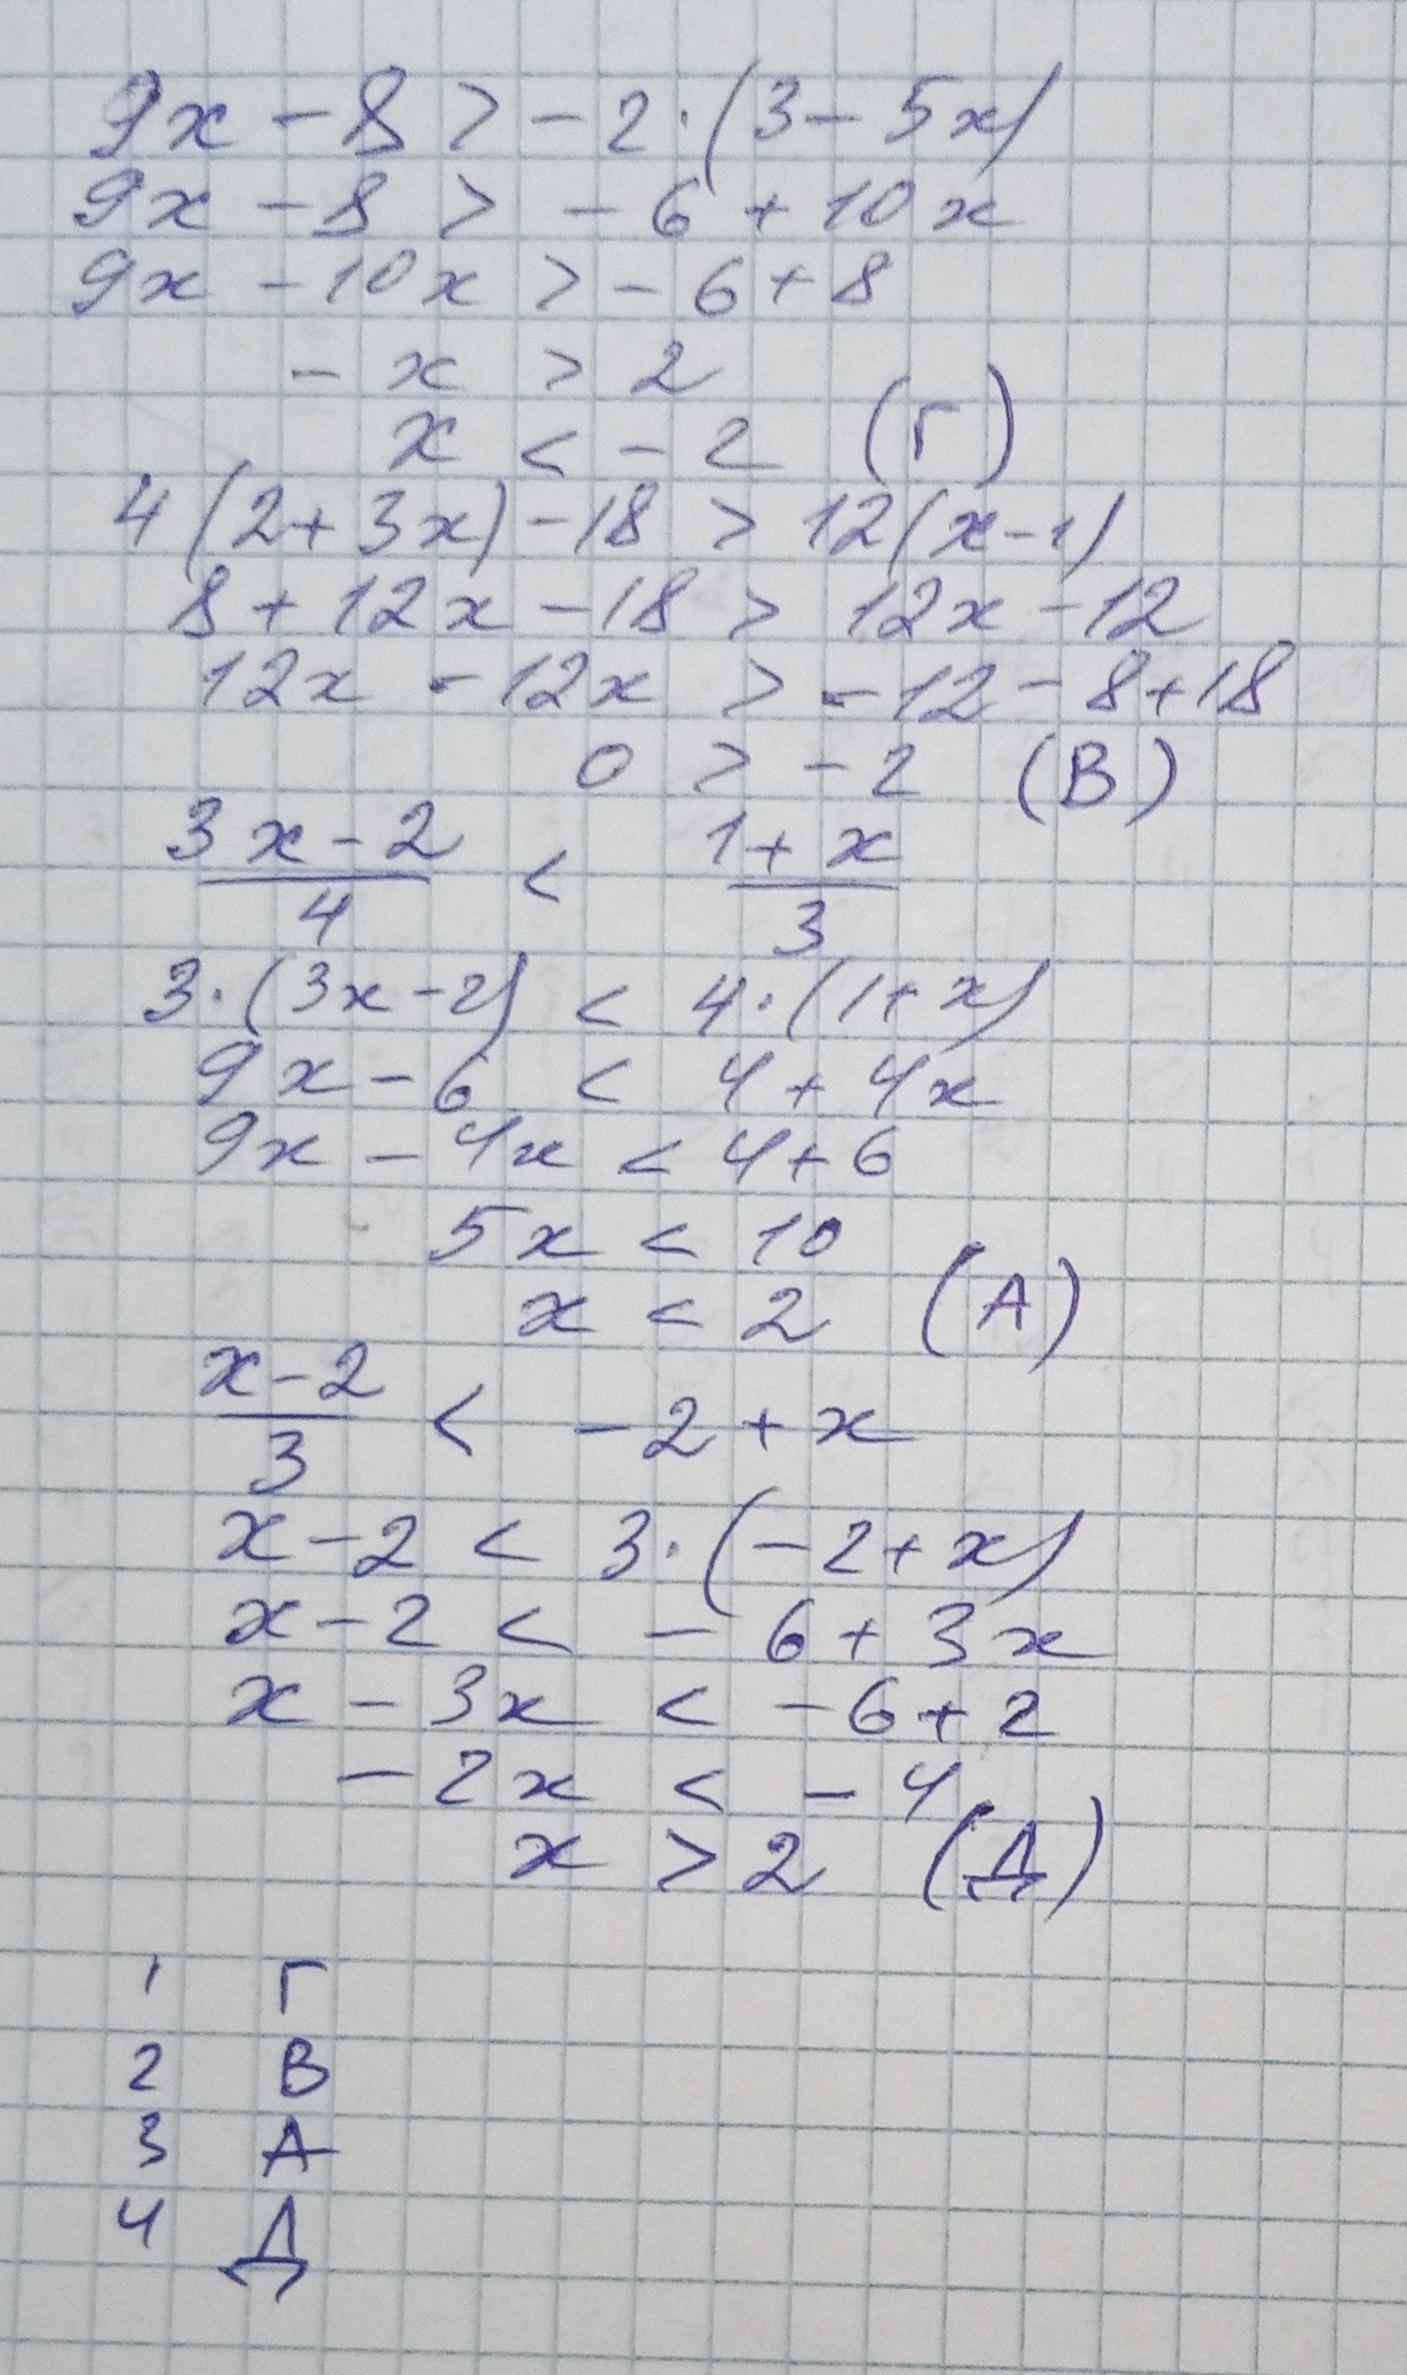 9x - 8 > - 2 · (3 - 5x)
9x - 8 > - 6 + 10x
9x - 10x > - 6 + 8
- x > 2
x < - 2 (Г)
4(2 + 3x) - 18 > 12(x - 1)
8 + 12x - 18 > 12x - 12
12x - 12x > - 12 - 8 + 18
0 > - 2 (В)
3x - 2 / 4 < 1 + x / 3
3 · (3x - 2) < 4 · (1 + x)
9x - 6 < 4 + 4x
9x - 4x < 4 + 6
5x < 10
x < 2 (А)
x - 2 / 3 < - 2 + x
x - 2 < 3 · (- 2 + x)
x - 2 < - 6 + 3x
x - 3x < - 6 + 2
- 2x < - 4
x > 2 (Д)
1 Г
2 В
3 А
4 Д